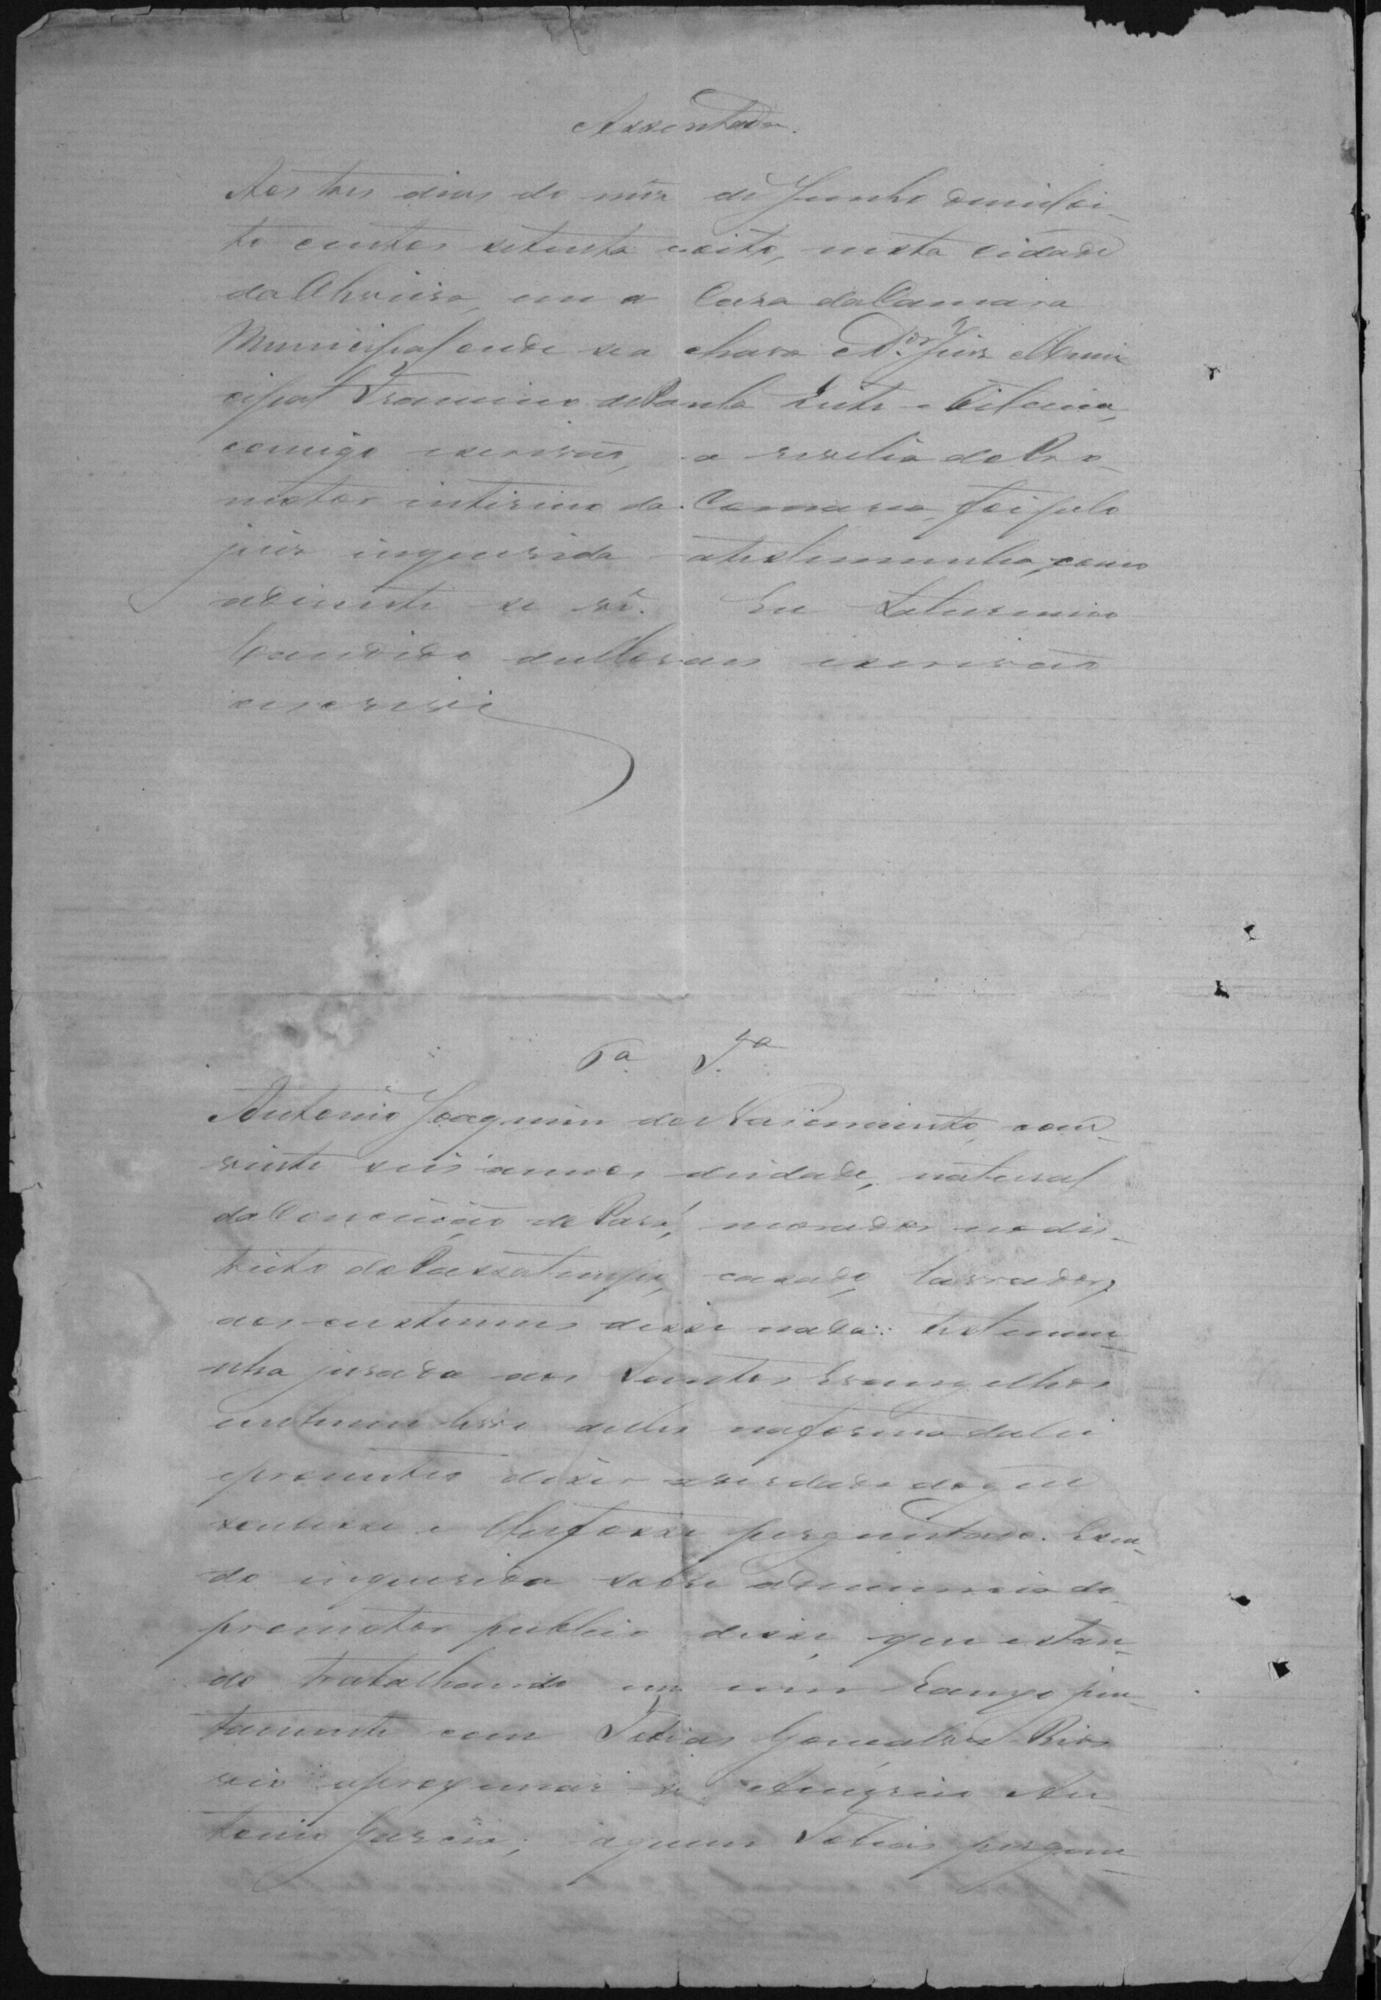 Assentada.
Aos tres dias do mez de Junho demil oi-
to centos setenta eoito, nesta cidade
da Oliveira, em a Casa da Camara
Municipal onde se a chava o Dor. Juiz Muni
cipal Francisco de Paula Leite e Oiticica,
comigo escrivão, a revelia do Pro-
motor intirino da Comarca, foi pelo
juiz inquerida atestemunha, como
adiante se vê. Eu
Candido de Moraes escrivão
escrevi
Ta
Antonio Joaquim do Nascimento, com
vinte seis annos deidade, natural
da Conceição do Pará, morador no dis-
tricto do Passatempo, casado, lavrador,
aos custumes disse nada: testemu-
nha jurada aos Santos Evangelhos
em hum livro delles na forma da lei
e prometteu dizer a verdade do que
soubesse e lhe fosse perguntado. Sen-
do inquerida sobre a denuncia do
promotor publico disse, que estan-
do trabalhando em um Rancho jun-
tamente com Tobias Gonçalves Rios
veio aproximar-se Americo An-
tonio Garcia; aquem Tobias pergun-